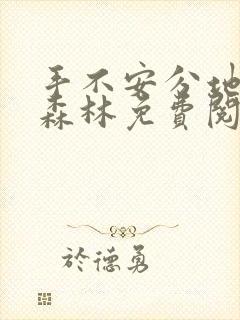 手不安分地
森林免費閱
於德勇